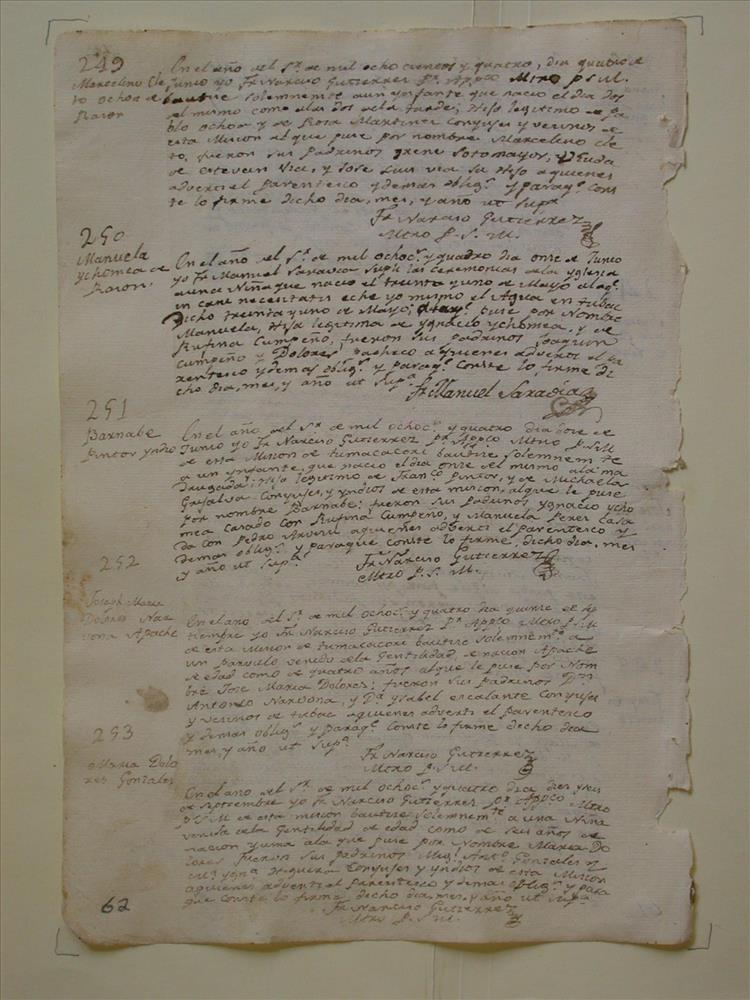 249
Marcelino Cle
to Ochoa de
Razon
En el año del Sr. de mil ocho cientos y quatro, dia quatro de
Junio yo Fr. Narciso Gutierres Pr. Appco Mtro P S M.
bautise solemnemte a un ynfante que nacio el dia dos
del mismo como a las dos de la tarde; Hijo legitimo de Pa
blo Ochoa y de Rosa Martinez Conyujes y vecinos de
esta Mision al que puse por nombre Marcelino Cle
to, fueron sus Padrinos yrene Sotomayor, Viuda
de estevan Vea, y Jose Luis Vea su Hijo a quienes
adverti el Parentesco y demas obligs. y paraqe. Cons
te lo firme dicho dia, mes, y año ut Supra
Fr Narciso Gutierrez
Mtro P. S. M.
250
Manuela
ychomea de
Razon.
En el año del Sr. de mil ochocs. y quatro dia onse de Junio
yo Fr. Manuel Saravia supli las ceremonias de la yglesia
a una Niña que nacio el treinta y uno de Mayo
in casu necesitatis eche yo mismo el Agua en Tubac
Dicho treinta y uno de Mayo; puse por Nombre
Manuela, Hija legitima de ygnacio ychomea, y de
Rufina Cumpeño, fueron sus Padrinos Joaquin
Cumpeño y Dolores Pacheco a quienes adverti el pa
rentesco y demas obligs. y paraqe. Conste lo firme di
cho dia, mes, y año ut Supra
Fr Manuel Saravia
251
Barnabe
Pintor yndio
En el año del Sr. de mil ochocs. y quatro dia dose de
Junio yo Fr. Narciso Gutierrez Pr. Appco Mtro P. S. M
de esta Mision de tumacacori bautise solemnemte
a un ynfante, que nacio el dia onse del mismo a la ma
drugada; Hijo legitimo de Franco. Pintor, y de Michaela
Grijalva Conyujes, y yndios de esta mision, al que le puse
por nombre Barnabe; fueron sus Padrinos ygnacio ycho
mea Casado con Rufina Cumpeño, y Manuela Peres Casa
da con Pedro a quienes adverti el parentesco y
demas obligs. y paraque conste lo firme, dicho dia, mes
y año ut Supra.
Fr Narciso Gutierrez
Mtro P. S. M.
252
Joseph Maria
Dolores Nar
vona Apache
En el año del Sr. de mil ochocs. y quatro dia quinse de sep
tiembre yo Fr. Narciso Gutierrez Pr. Appco Mtro P. S. M
de esta Mision de tumacacori bautise solemnemte. a
un parvulo venido de la Gentilidad, de nacion Apache
de edad como de quatro años alque le puse por Nom
bre Jose Maria Dolores; fueron sus Padrinos Dn.
Antonio Narvona, y Da. ysabel escalante Conyujes
y vecinos de tubac a quienes adverti el parentesco
y demas obligs. y paraqe. Conste lo firme dicho dia
mes, y año ut Supra.
Fr Narciso Gutierrez
Mtro P. S. M.
253
Maria Dolo
res Gonzales
En el año del Sr. de mil ochocs. y quatro dia dies y seis
de septiembre yo Fr. Narciso Gutierres Pr. Appco Mtro
P. S. M de esta mision bautise solemnemte a una Niña
venida de la Gentilidad de edad como de seis años de
nacion yuma ala que puse por Nombre Maria Do
lores fueron sus Padrinos Migl. Anto. Gonzales y
ygna. Higuera Conyujes y yndios de esta Mision
a quienes adverti el parentesco y demas obligs. y para
que conste lo firme dicho dia, mes, y año ut Supra
Fr Narciso Gutierrez
Mtro P. S. M.
62